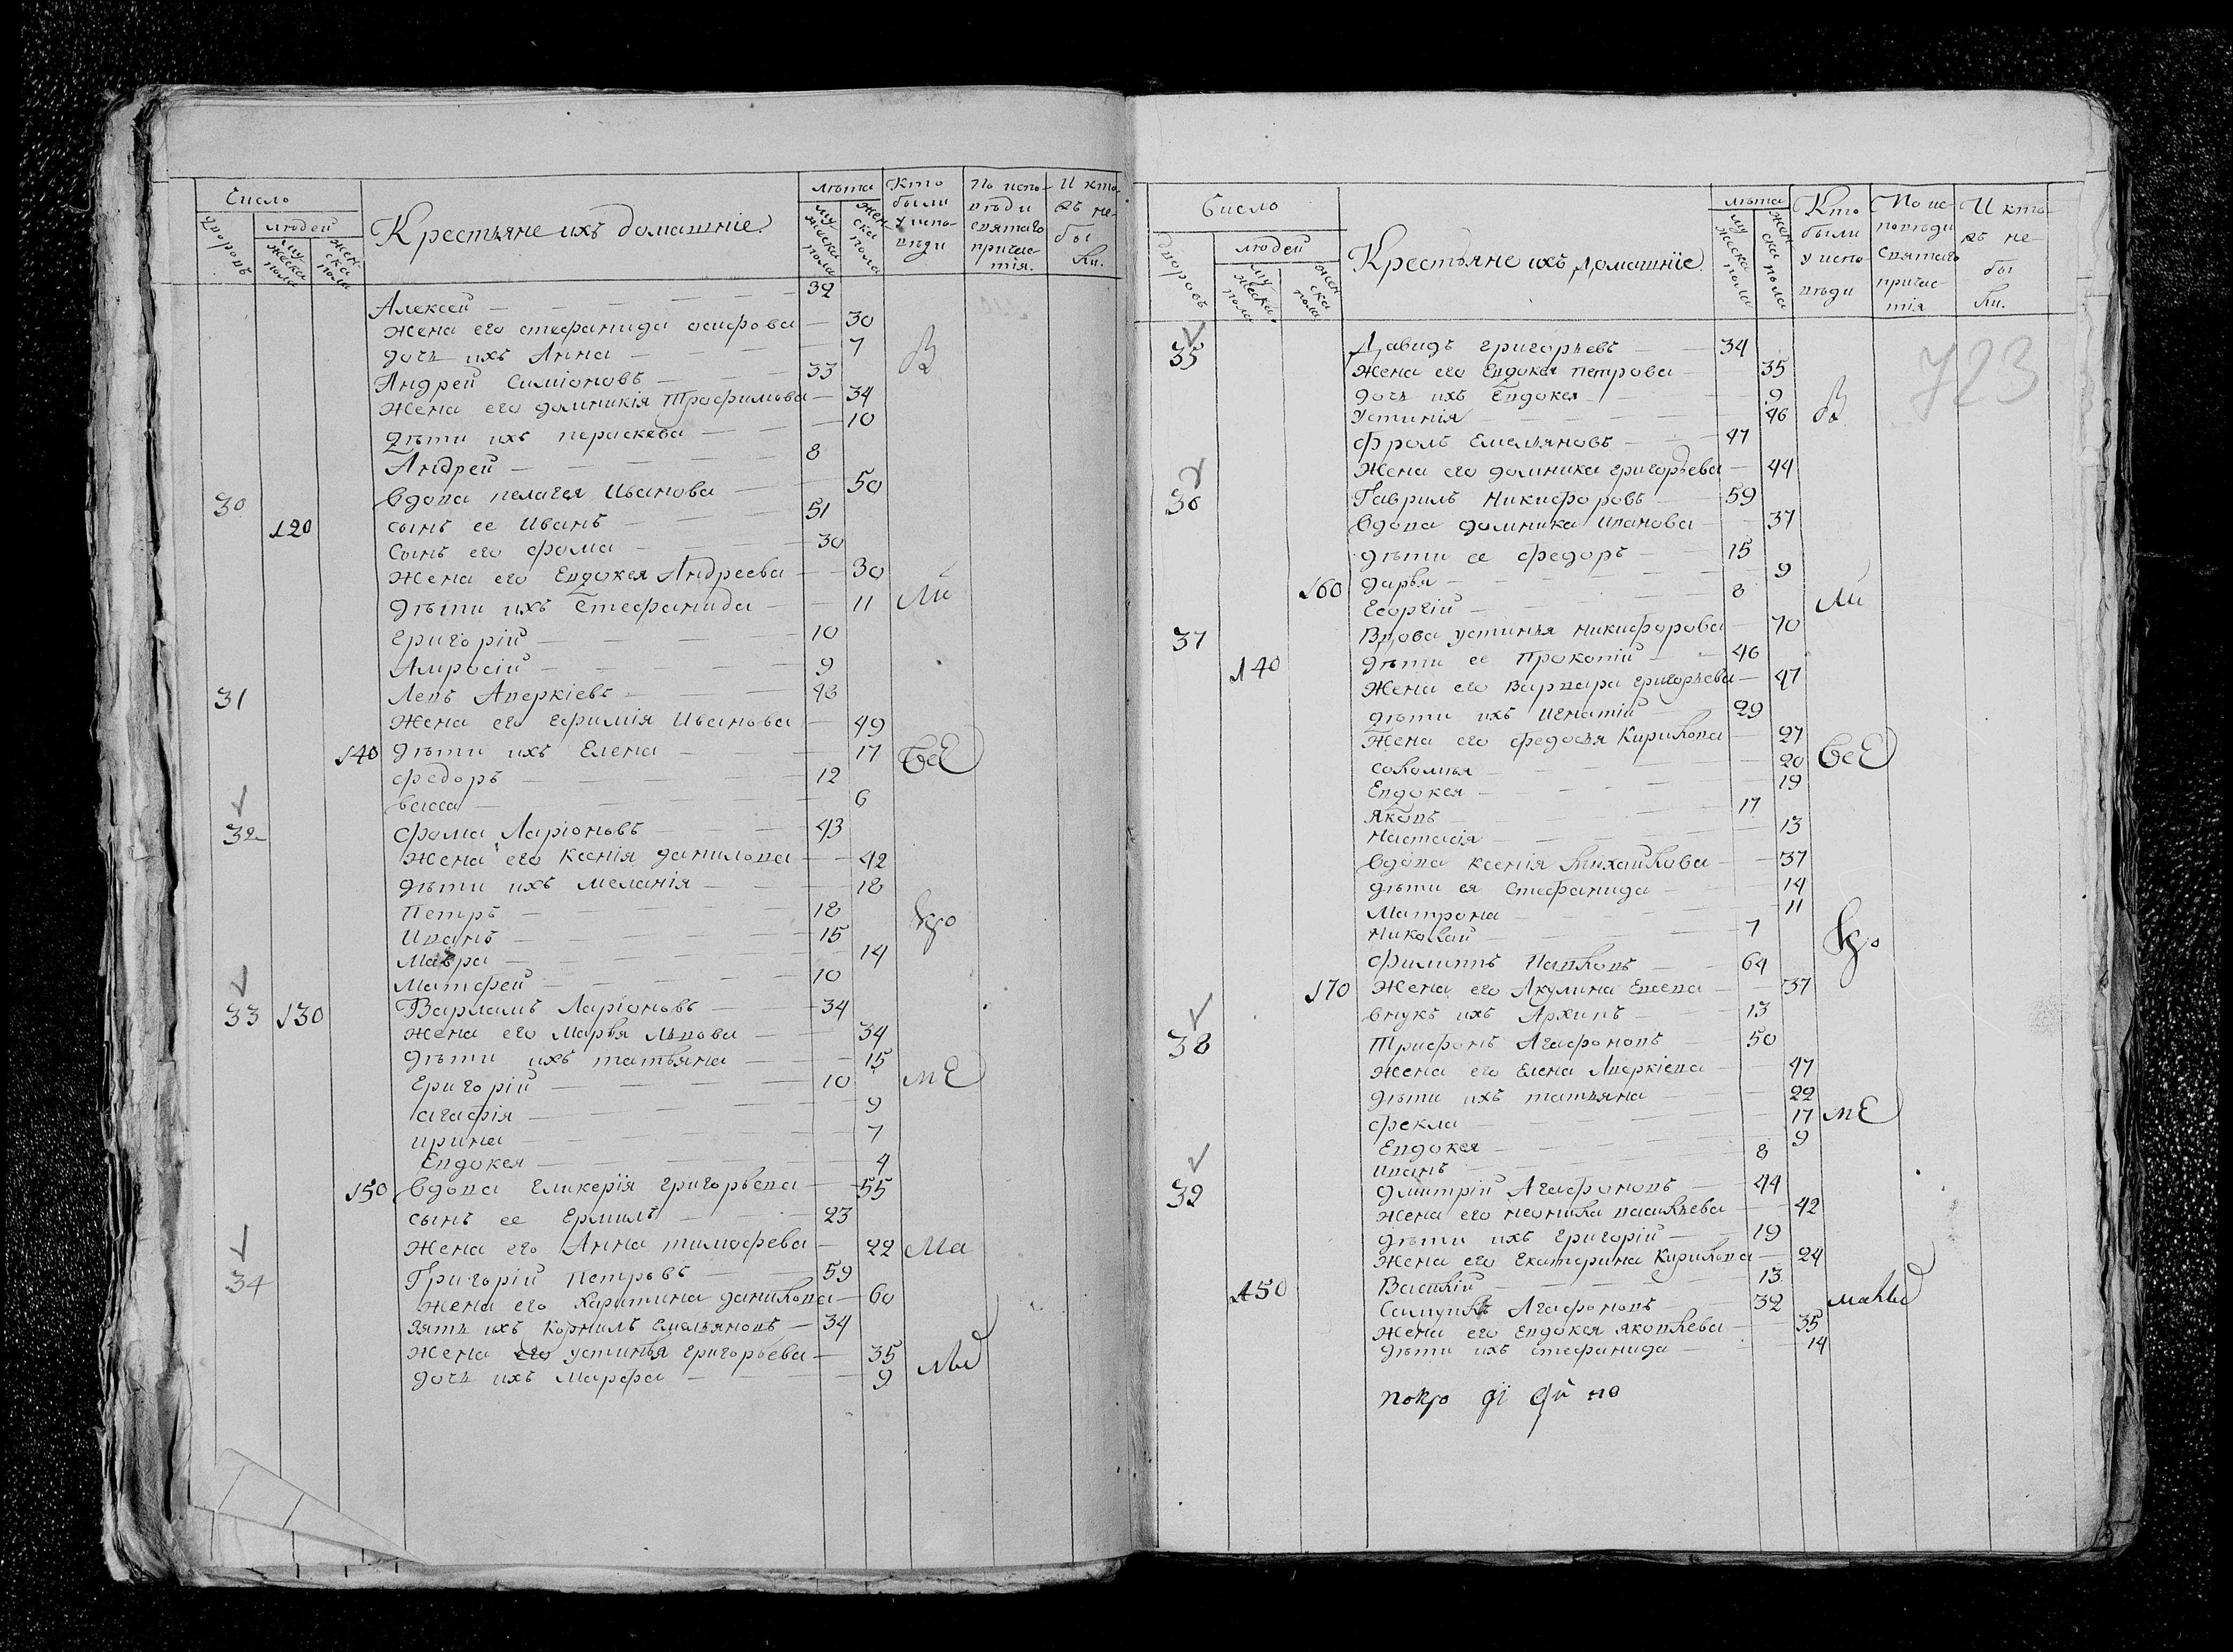 Число
дворовъ
людей
мужеска пола
женска пола
Крестьяне ихъ домашніе.
лѣта
мужеска пола
женска пола
Кто были у исповѣди
По исповѣди святаго причастія.
И кто въ не были.
Алексей 32
жена его стефанида осифова 30
дочь ихъ Анна 7
Андрей Симіоновъ 33
Жена его домникія Трофимова 34
дѣти ихъ пераскева 10
Андрей 8
30 вдова пелагея Иванова 50
120 сынъ ее Иванъ 51
Сынъ его фома 30
жена его Евдокея Андреева 30
дѣти ихъ Стефанида 11
григорій 10
Амросій 9
31 Левъ Аверкіевъ 48
жена его Ефимія Иванова 49
140 дѣти ихъ Елена 17
федоръ 12
васса 6
32 фома Ларіоновъ 43
жена его ксенія данилова 42
дѣти ихъ меланія 18
Петръ 18
Иванъ 15
Мавра 14
Матфей 10
33 130 Варламъ Ларіоновъ 34
жена его Марья Львова 34
дѣти ихъ татьяна 15
Григорій 10
агафія 9
ирина 7
Евдокея 4
150 вдова гликерія григорьева 55
сынъ ее Ермилъ 23
жена его Анна тимофева 22
34 Григорій Петровъ 59
жена его Харитина данилова 60
зять ихъ Корнилъ Емельяновъ 34
жена его устинья григорьева 35
дочь ихъ Марфа 9
Число
дворовъ
людей
мужеска пола
женска пола
Крестьяне ихъ домашніе.
лѣта
мужеска пола
женска пола
Кто были у исповѣди
По исповѣди святаго причастія
И кто въ не были.
723
35 Давидъ григорьевъ 34
жена его Евдокея петрова 35
дочь ихъ Евдокея 9
Устинія 46
фролъ Емельяновъ 47
жена его домника григорьева 44
36 Гаврилъ Никифоровъ 59
вдова домника иванова 37
дѣти ее федоръ 15
160 дарья 9
Георгій 8
37 Вдова устинья никифорова 70
140 дѣти ее Прокопій 46
жена его варвара григорьева 47
дѣти ихъ игнатій 29
Жена его федосья Кирилова 27
соломья 20
Евдокея 19
яковъ 17
Настасія 13
вдова ксенія михайлова 37
дѣти ея Стефанида 14
Матрона 11
Николай 7
филиппъ Павловъ 64
170 жена его Акулина Евсева 37
внукъ ихъ Архипъ 13
38 Трифонъ Агафоновъ 50
жена его Елена Аверкіева 47
дѣти ихъ татьяна 22
фекла 17
Евдокея 9
иванъ 8
39 дмитрій Агафоновъ 44
жена его неонила васильева 42
дѣти ихъ григорій 19
жена его Екатерина Кирилова 24
150 Василій 13
Самуилъ Агафоновъ 32
жена его Евдокея яковлева 35
дѣти ихъ стефанида 14